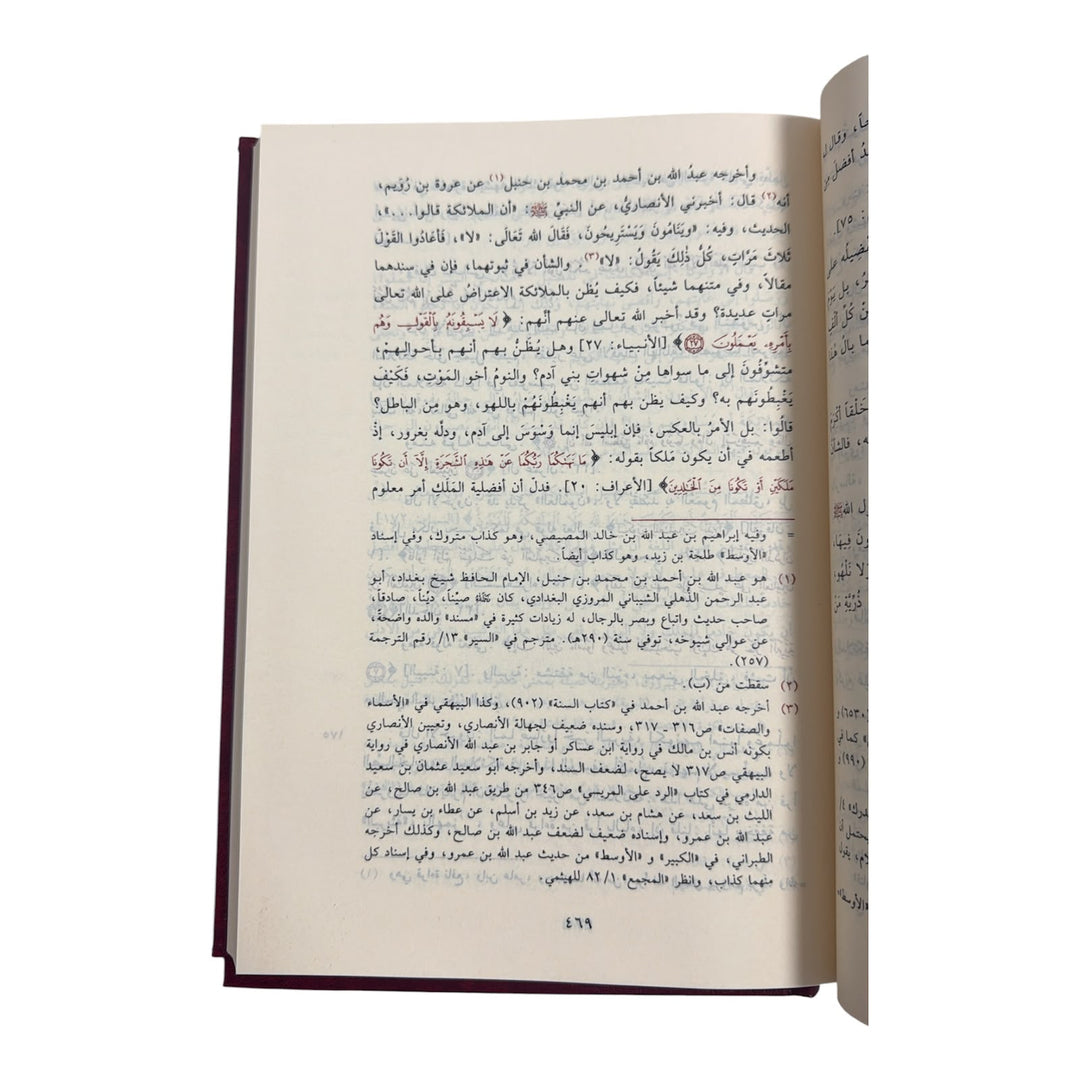 وأخرجه عبدُ الله بن أحمد بن محمد بن حنبل(١) عن عروة بن رُوَيم،
أنه(٢) قال: أخبرني الأنصاريُّ، عن النبيِّ ﷺ: «أن الملائكة قالوا...»،
الحديث، وفيه: «وَيَنَامُونَ وَيَسْتَرِيحُونَ، فَقَالَ الله تَعَالَى: «لا»، فَأَعَادُوا القَوْلَ
ثَلاثَ مَرَّاتٍ، كُلُّ ذٰلِكَ يَقُولُ: «لا»(٣). والشأن في ثبوتهما، فإن في سندهما
مقالاً، وفي متنهما شيئاً، فكيف يُظن بالملائكة الاعتراضُ على الله تعالى
مراتٍ عديدة؟ وقد أخبر الله تعالى عنهم أنَّهم: ﴿ لَا يَسْبِقُونَهُۥ بِٱلْقَوْلِ وَهُم
بِأَمْرِهِۦ يَعْمَلُونَ ۝٢٧ ﴾ [الأنبياء: ٢٧] وهل يُظَنُّ بهم أنهم بأحوالِهم،
متشوِّفونَ إلى ما سواها مِنْ شهواتِ بني آدم؟ والنومُ أخو المَوْتِ، فَكَيْفَ
يَغْبِطُونَهم به؟ وكيف يظن بهم أنهم يَغْبِطُونَهُمْ باللهو، وهو مِن الباطل؟
قالُوا: بل الأمرُ بالعكس، فإن إبليسَ إنما وَسْوَسَ إلى آدم، ودلَّه بغرور، إذْ
أطعمه في أن يكون مَلكاً بقوله: ﴿ مَا نَهَىٰكُمَا رَبُّكُمَا عَنْ هَٰذِهِ ٱلشَّجَرَةِ إِلَّآ أَن تَكُونَا
مَلَكَيْنِ أَوْ تَكُونَا مِنَ ٱلْخَٰلِدِينَ﴾ [الأعراف: ٢٠]. فدلَّ أن أفضلية المَلَك أمر معلوم
= وفيه إبراهيم بن عبد الله بن خالد المصيصي، وهو كذاب متروك، وفي إسناد
«الأوسط» طلحة بن زيد، وهو كذاب أيضاً.
(١) هو عبد الله بن أحمد بن محمد بن حنبل، الإمام الحافظ شيخ بغداد، أبو
عبد الرحمن الذُّهلي الشيباني المروزي البغدادي، كان رحمه الله صيِّناً، ديِّناً، صادقاً،
صاحب حديث واتباع وبصر بالرجال، له زيادات كثيرة في «مسند» والده واضحة،
عن عوالي شيوخه، توفي سنة (٢٩٠هـ). مترجم في «السير» ١٣/ رقم الترجمة
(٢٥٧).
(٢) سقطت من (ب).
(٣) أخرجه عبد الله بن أحمد في «كتاب السنة» (٩٠٢)، وكذا البيهقي في «الأسماء
والصفات» ص٣١٦ـ ٣١٧، وسنده ضعيف لجهالة الأنصاري، وتعيين الأنصاري
بكونه أنس بن مالك في رواية ابن عساكر أو جابر بن عبد الله الأنصاري في رواية
البيهقي ص٣١٧ لا يصح، لضعف السند، وأخرجه أبو سعيد عثمان بن سعيد
الدارمي في كتاب «الرد على المريسي» ص٣٤٦ من طريق عبد الله بن صالح، عن
الليث بن سعد، عن هشام بن سعد، عن زيد بن أسلم، عن عطاء بن يسار، عن
عبد الله بن عمرو، وإسناده ضعيف لضعف عبد الله بن صالح، وكذلك أخرجه
الطبراني، في «الكبير» و «الأوسط» من حديث عبد الله بن عمرو، وفي إسناد كل
منهما كذاب، وانظر «المجمع» ٨٢/١ للهيثمي.
٤٦٩